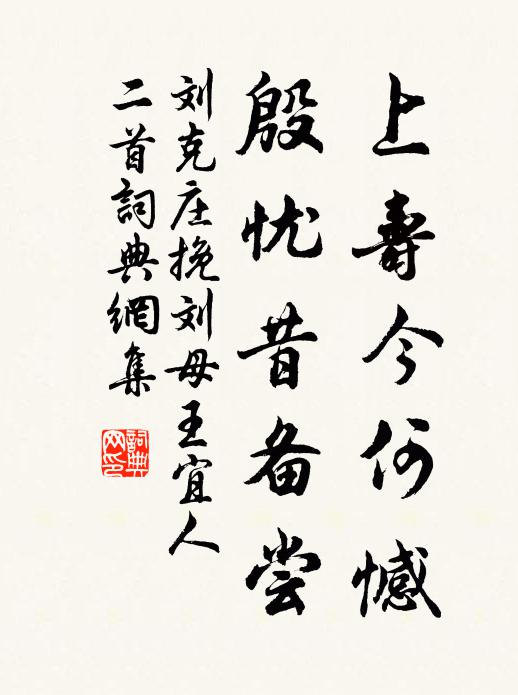 上寿今何憾
殷忧昔备尝
刘克庄挽刘母王宜人
二首詞典網集
詞典
网印